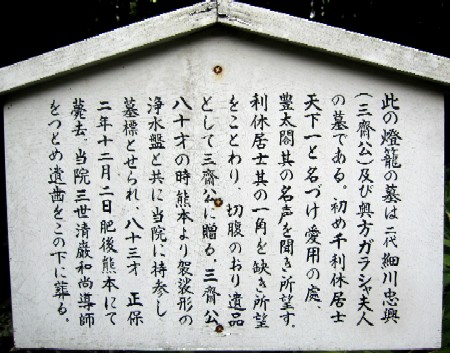 此の燈籠の墓は二代細川忠興
(三齋公)及び奥方ガラシャ夫人
の墓である。初め千利休居士
天下一と名づけ愛用の處、
豊太閤其の名声を聞き所望す。
利休居士其の一角を缺き所望
をことわり、切腹のおり遺品
として三齋公に贈る。三齋公
八十才の時熊本より袈裟形の
浄水盤と共に当院に持参し
墓標とせられ、八十三才 正保
二年十二月二日肥後熊本にて
薨去、当院三世清巌和尚導師
をつとめ遺歯をこの下に葬る。